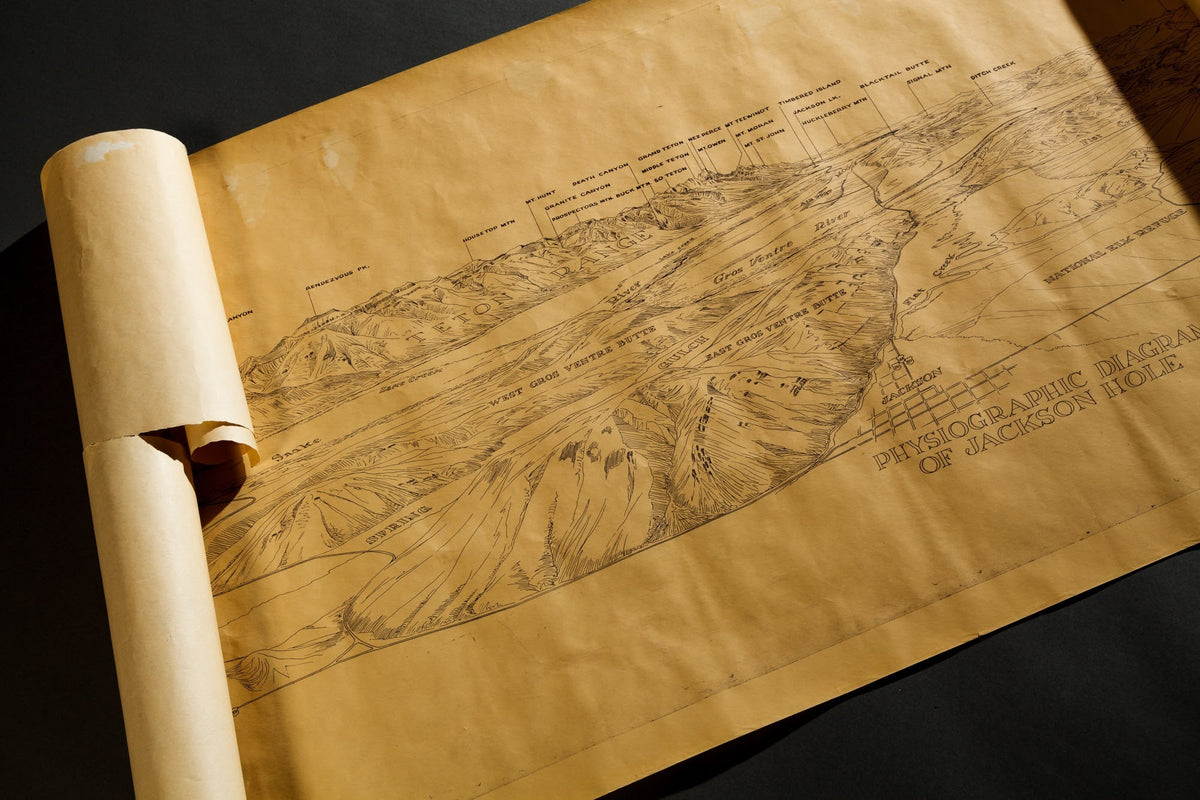 ANYON
RENDEZVOUS PK.
HOUSETOP MTN
MT. HUNT
GRANITE CANYON
DEATH CANYON
PROSPECTORS MTN.
BUCK MTN.
SO TETON
MIDDLE TETON
GRAND TETON
NEZ PERCE
MT OWEN
MT TEEWINOT
MT. MORAN
MT. ST. JOHN
TIMBERED ISLAND
JACKSON LK.
HUCKLEBERRY MTN
BLACKTAIL BUTTE
SIGNAL MTN
DITCH CREEK
TETON RANGE
Lake Creek
Snake River
Gros Ventre River
WEST GROS VENTRE BUTTE
EAST GROS VENTRE BUTTE
SPRING GULCH
Flat Creek
FLAT
NATIONAL ELK REFUGE
JACKSON
PHYSIOGRAPHIC DIAGRA
OF JACKSON HOLE